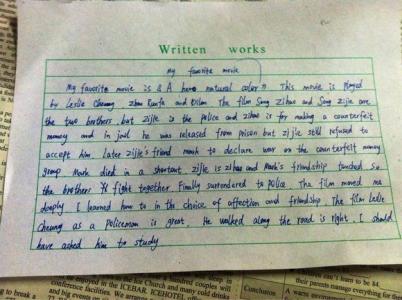 Written works
My favorite movie
My favorite movie is & A hero natural color » This movie is played
by Leslie Cheung zhou Runfa and The film Song zihao and Song zijie are
the two brothers, but zijie is the police and zihao is for making a counterfeit
money and in jail he was released from prison but zijie still refused to
accept him Later zijie's friend mark to declare war on the counterfeit money
group Mark died in a zijie is zihao and Mark's friendship touched so
the brothers fight together. Finally surrendered to police The film moved me
deeply I learned how to in the choice of affection and friendship The film Leslie
cheung as a policeman is great, He walked along the road is right, I should
have asked him to study